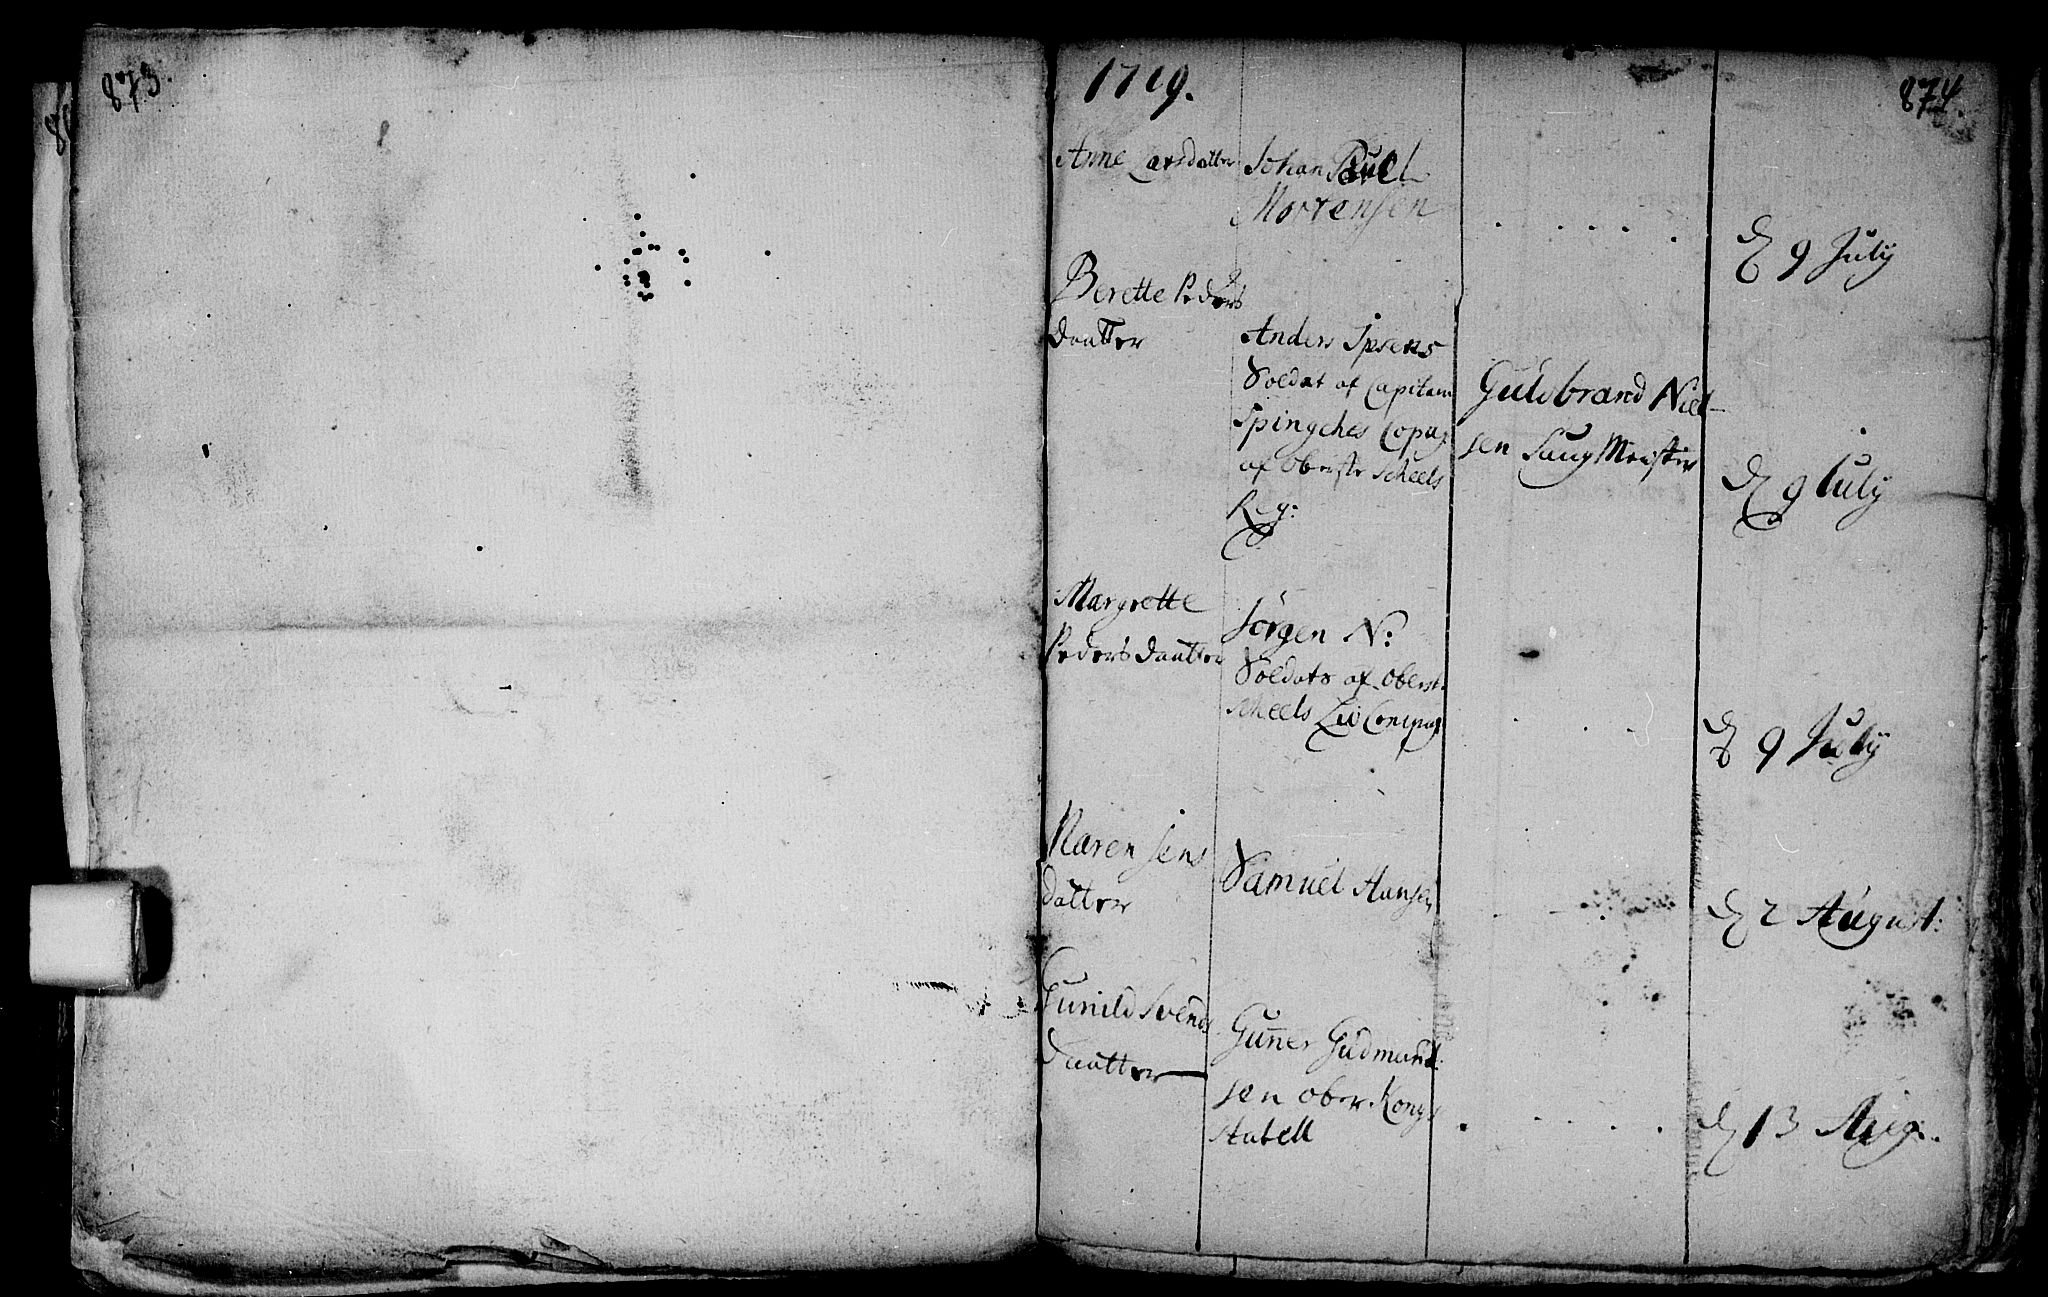 873.
1719.
874.
Anne Larsdatter
Johan Pauel
Mortensen
. . . . .
d 9 July
Berette Peders
daatter
Anders Ipsens
Soldat af Capitain
Spingches Copag
af Oberste Scheels
Reg:
Guldbrand Niel-
sen Saug Meister
d 9 July
Margrette
Peders daatter
Jörgen N:
Soldats af Oberst
Scheels Liv Compag
d 9 July
Maren Jens
datter
Samuel Hansen
d 2 August:
Gunild Svends
daatter
Guner Gudmund
sen ober Kong
Stabell
. . . . .
d 13 Aug.